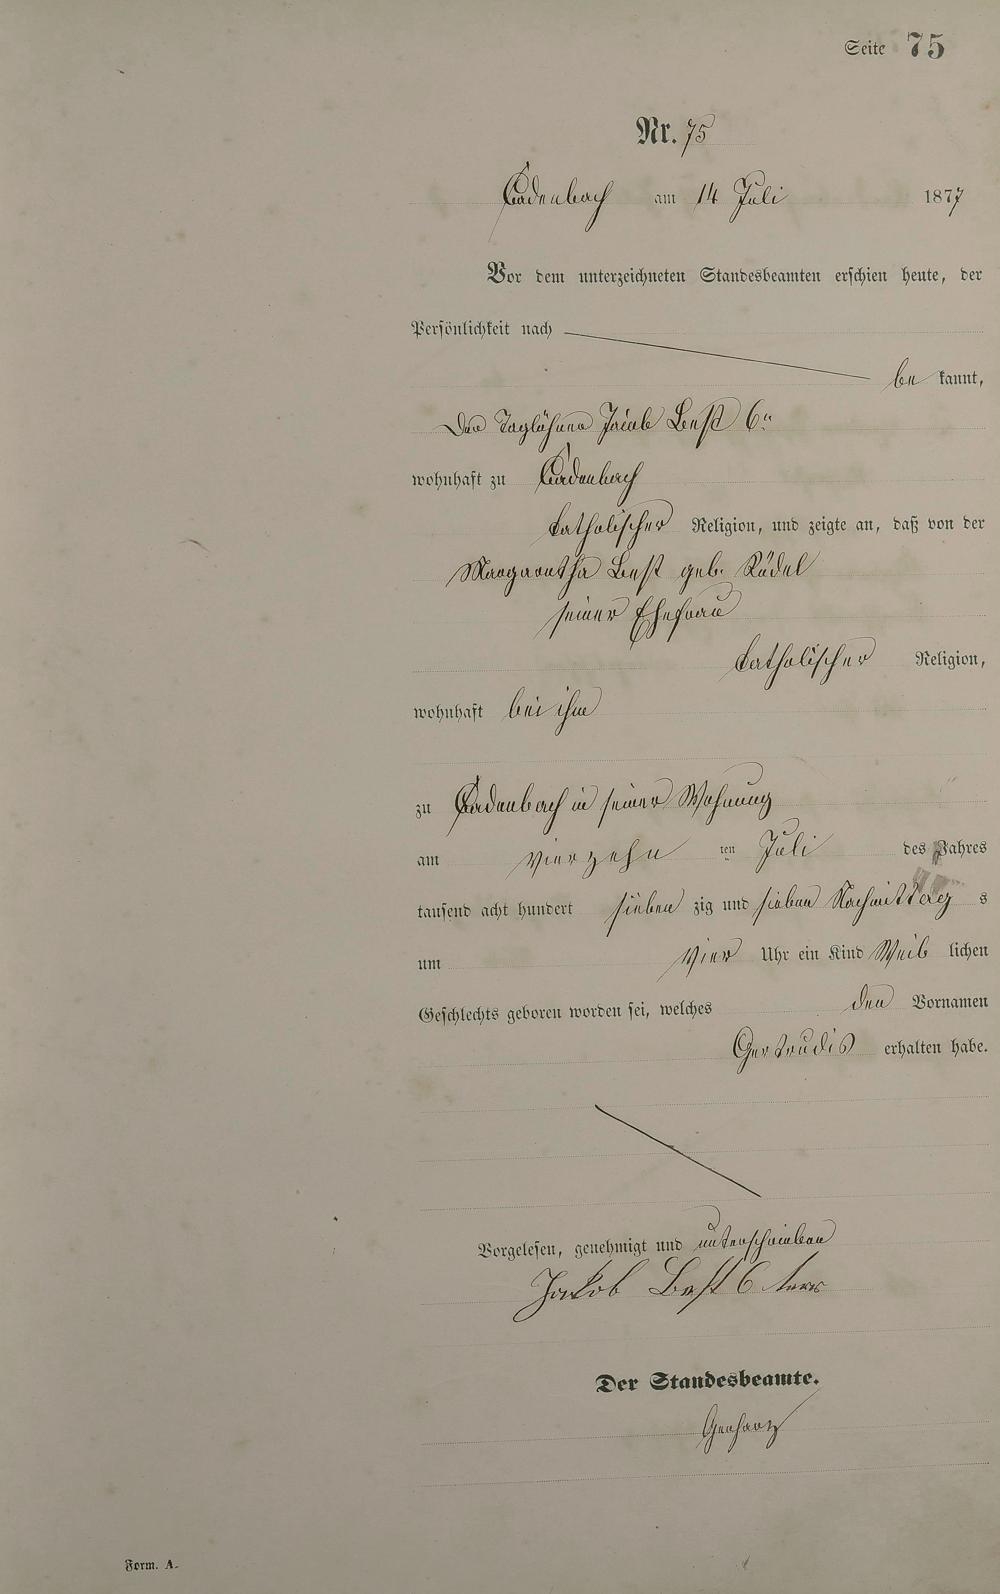 Seite 75
Nr. 75
Cadenbach am 14 Juli 1877
Vor dem unterzeichneten Standesbeamten erschien heute, der
Persönlichkeit nach
be kannt,
Der Taglöhner Jacob Best 6r
wohnhaft zu Cadenbach
katholischer Religion, und zeigte an, daß von der
Margaretha Best geb. Rödel
seiner Ehefrau
katholischer Religion,
wohnhaft bei ihm
zu Cadenbach in seiner Wohnung
am vierzehn ten Juli des Jahres
tausend acht hundert sieben zig und sieben Nachmittag s
um vier Uhr ein Kind Weib lichen
Geschlechts geboren worden sei, welches den Vornamen
Gertrudis erhalten habe.
Vorgelesen, genehmigt und unterschrieben
Jakob Best 6 ter
Der Standesbeamte.
Gerharz
Form. A.